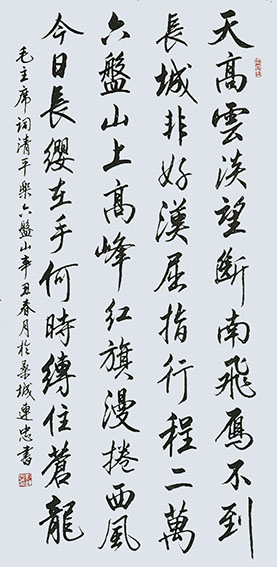 天高雲淡望斷南飛鴈不到
長城非好漢屈指行程二萬
六盤山上高峰紅旗漫捲西風
今日長纓在手何時縛住蒼龍
毛主席詞清平樂六盤山辛丑春月於城連忠書